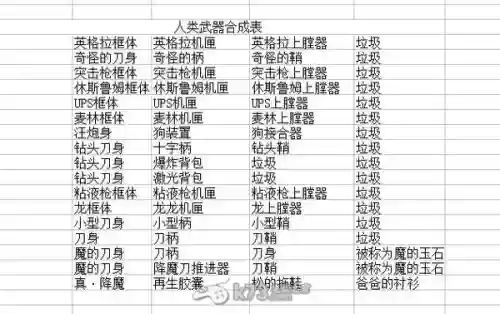 人类武器合成表
英格拉框体 英格拉机匣 英格拉上膛器 垃圾
奇怪的刀身 奇怪的柄 奇怪的鞘 垃圾
突击枪框体 突击枪机匣 突击枪上膛器 垃圾
休斯鲁姆框体 休斯鲁姆机匣 休斯鲁姆上膛器 垃圾
UPS框体 UPS机匣 UPS上膛器 垃圾
麦林框体 麦林机匣 麦林上膛器 垃圾
汪炮身 狗装置 狗接合器 垃圾
钻头刀身 十字柄 钻头鞘 垃圾
钻头刀身 爆炸背包 垃圾 垃圾
钻头刀身 激光背包 垃圾 垃圾
粘液枪框体 粘液枪机匣 粘液枪上膛器 垃圾
龙框体 龙龙机匣 龙上膛器 垃圾
小型刀身 小型柄 小型鞘 垃圾
刀身 刀柄 刀鞘 垃圾
魔的刀身 刀柄 刀鞘 被称为魔的玉石
魔的刀身 降魔刀推进器 刀鞘 被称为魔的玉石
真·降魔 再生胶囊 松的拖鞋 爸爸的衬衫
k73